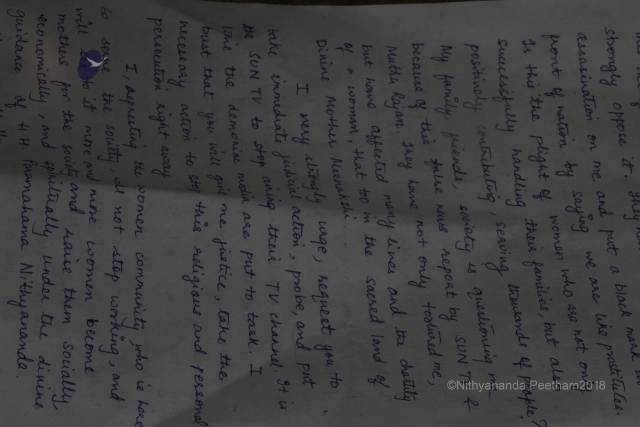 strongly oppose it. They have
assasination on me and put a black mark in
front of nation by saying we are like prostitutes.
Is this the plight of women who are not only
successfully handling their families, but also
positively contributing, serving thousands of people?
My family, friends, society is questioning me
because of this false news report by SUN TV &
Mukil Rajan. They have not only tortured me,
but have affected many lives and the chastity
of a woman, that too in the sacred land of
Divine Mother Meenakshi.
I very strongly urge, request you to
take immediate judicial action, probe, and put
SUN TV to stop airing their TV channel. It is
time the demonise media are put to task. I
trust that you will give me justice, take the
necessary action to stop this religious and personal
persecution right away.
I, repreting the women community, who is here
to serve the society, do not stop working, and
will to it more and more women become
mothers for the society and raise them socially,
economically, and spiritually under the divine
guidance of H.H. Paramahamsa Nithyananda.
©Nithyananda Peetham2018